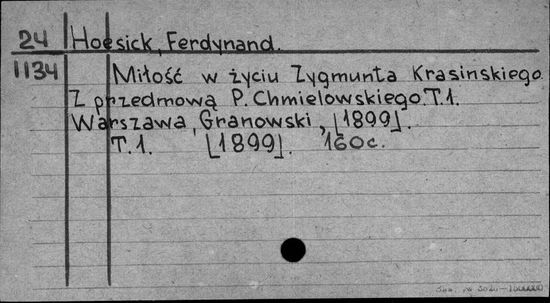 24 Hoesick, Ferdynand.
1134 Miłość w życiu Zygmunta Krasinskiego
Z przedmową P. Chmielowskiego. T.1.
Warszawa, Granowski, [1899].
T.1. [1899]. 160c.